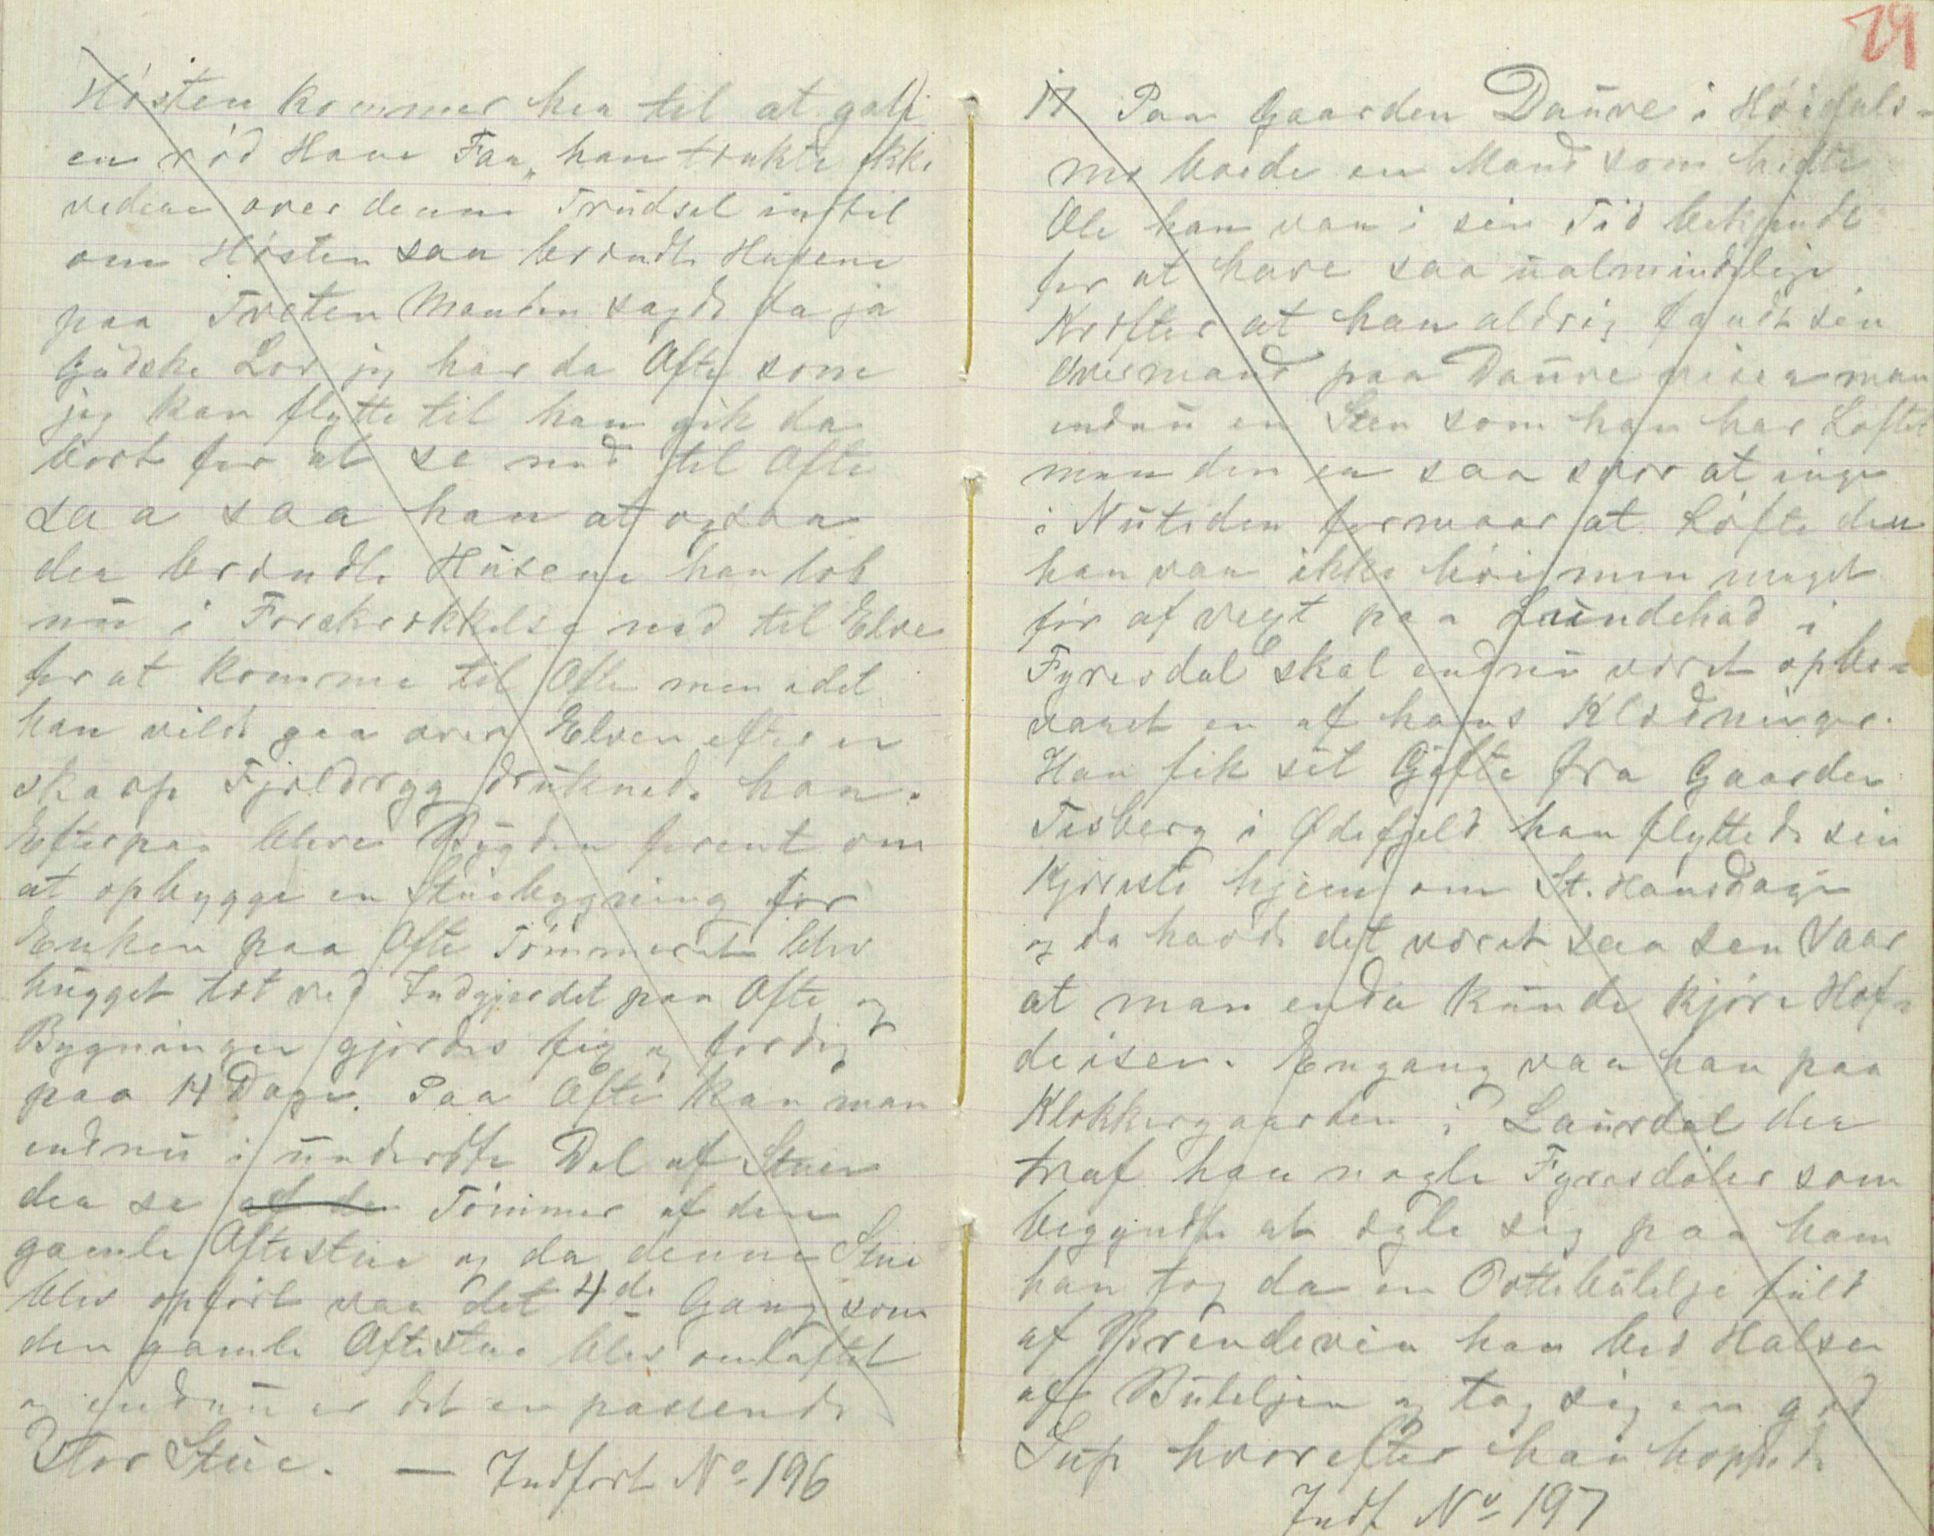 Hösten kommer her til at galé
en röd Hane Faa, han tænkte ikke
videre over denne Trudsel intil
om Hösten saa brændte Husene
paa Træten Manden sagde da ja
Gudske Lov jeg har da Ofte som
jeg kan flytte til han gik da
bort for at se ned til Ofte
saa saa han at ogsaa
der brændte Husene han løb
nu i Forskrækkelse ned til Elve
for at komme til Ofte men idet
han vilde gaa over Elven efter en
skaap Fjeldryg druknede han.
Efterpaa bleve Bygden forent om
at opbygge en Stuebygning for
Enken paa Ofte Tömmeret blev
hugget tæt ved Indgjerdet paa Ofte og
Bygningen gjordes fig og færdig
paa 14 Dage. Paa Ofte kan man
endnu i underste Del af Stuen
der se af de Tömmer af den
gamle Oftestue og da denne Stue
blev opført var det 4de Gang som
den gamle Oftestue blev omlaftet
og endnu er det en passende
Stor Stue. — Indført No 196
29
17 Paa Gaarden Daüve i Höidals-
mo boede en Mand som hedte
Ole han var i sin Tid bekjendt
for at have saa ualmindelige
Kræfter at han aldrig fandt sin
Overmand paa Daüve viser man
endnu en Sten som han har Løftet
men den er saa svær at ingen
i Nutiden formaar at Løfte den
han var ikke höi men meget
før af vext paa Lundehad i
Fyresdal skal endnu været opbe-
varet en af hans Klædninger.
Han fik sit Gifte fra Gaarden
Tisberg i Ødefjeld han flyttede sin
Kjæreste hjem om St. Hansdage
og da havde det været saa sen Vaar
at man enda kunde kjöre Hof-
deisen. Engang var han paa
Klokkergaarden i Laurdal der
traf han nogle Fyresdöler som
begyndte at ægle sig paa ham
han tog da en Pottebutelje fuld
af Brendevin han bed Halsen
af Buteljen og tog sig en god
Sup hvorefter han hoppede
Indf No 197